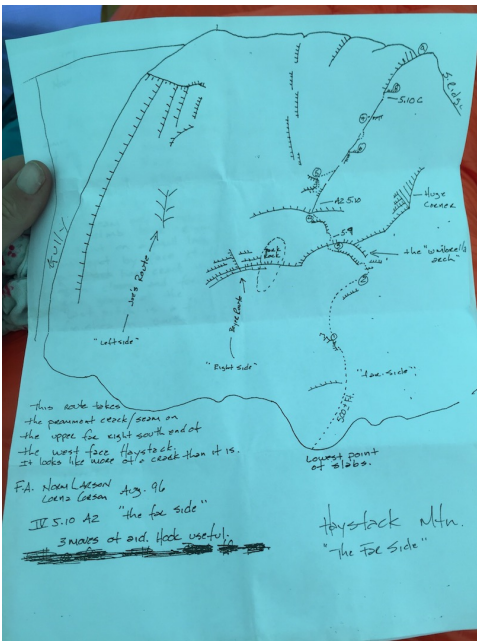 S. Ridge
5.10 C
Huge
Corner
A2 5.10
5.9
the "umbrella
arch"
Gully
Joe's Route
"Left side"
Dark
Rock
"Right side"
"far-side"
Lowest point
of slabs.
This route takes
the prominent crack/seam on
the upper far right south end of
the west face Haystack.
It looks like more of a crack than it is.
F.A. Norm Larson
Lorna Corson Aug. 96
IV 5.10 A2 "the far side"
3 moves of aid. Hook useful.
Haystack Mtn.
"The Far Side"